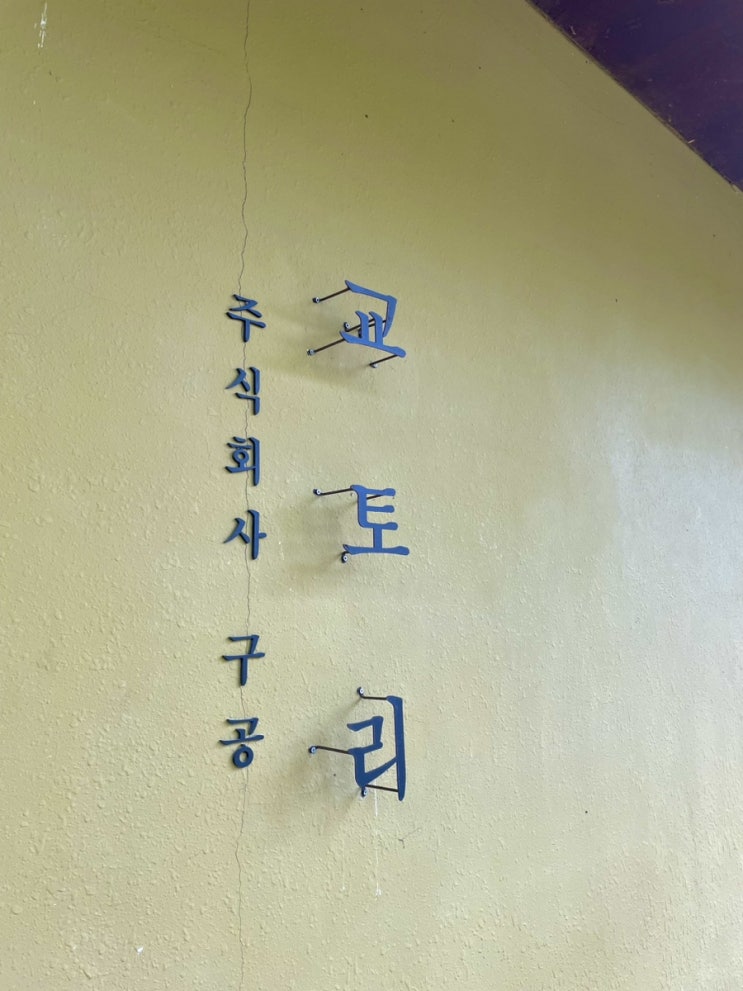 주식회사 구공
교토리